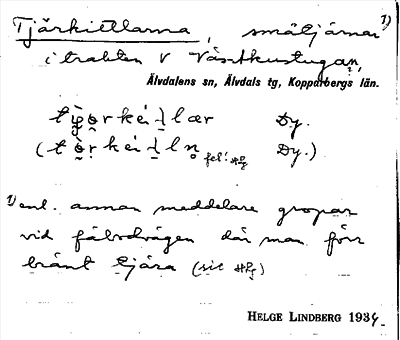 Tjärkittlarna, småtjärnar 1)
i trakten v Vässtkustugan,
Älvdalens sn, Älvdals tg, Kopparbergs län.
Dy.
fel! Hlg Dy.)
1) enl. annan meddelare gropar
vid fäbodvägen där man förr
bränt tjära (sic Hlg)
HELGE LINDBERG 1934.